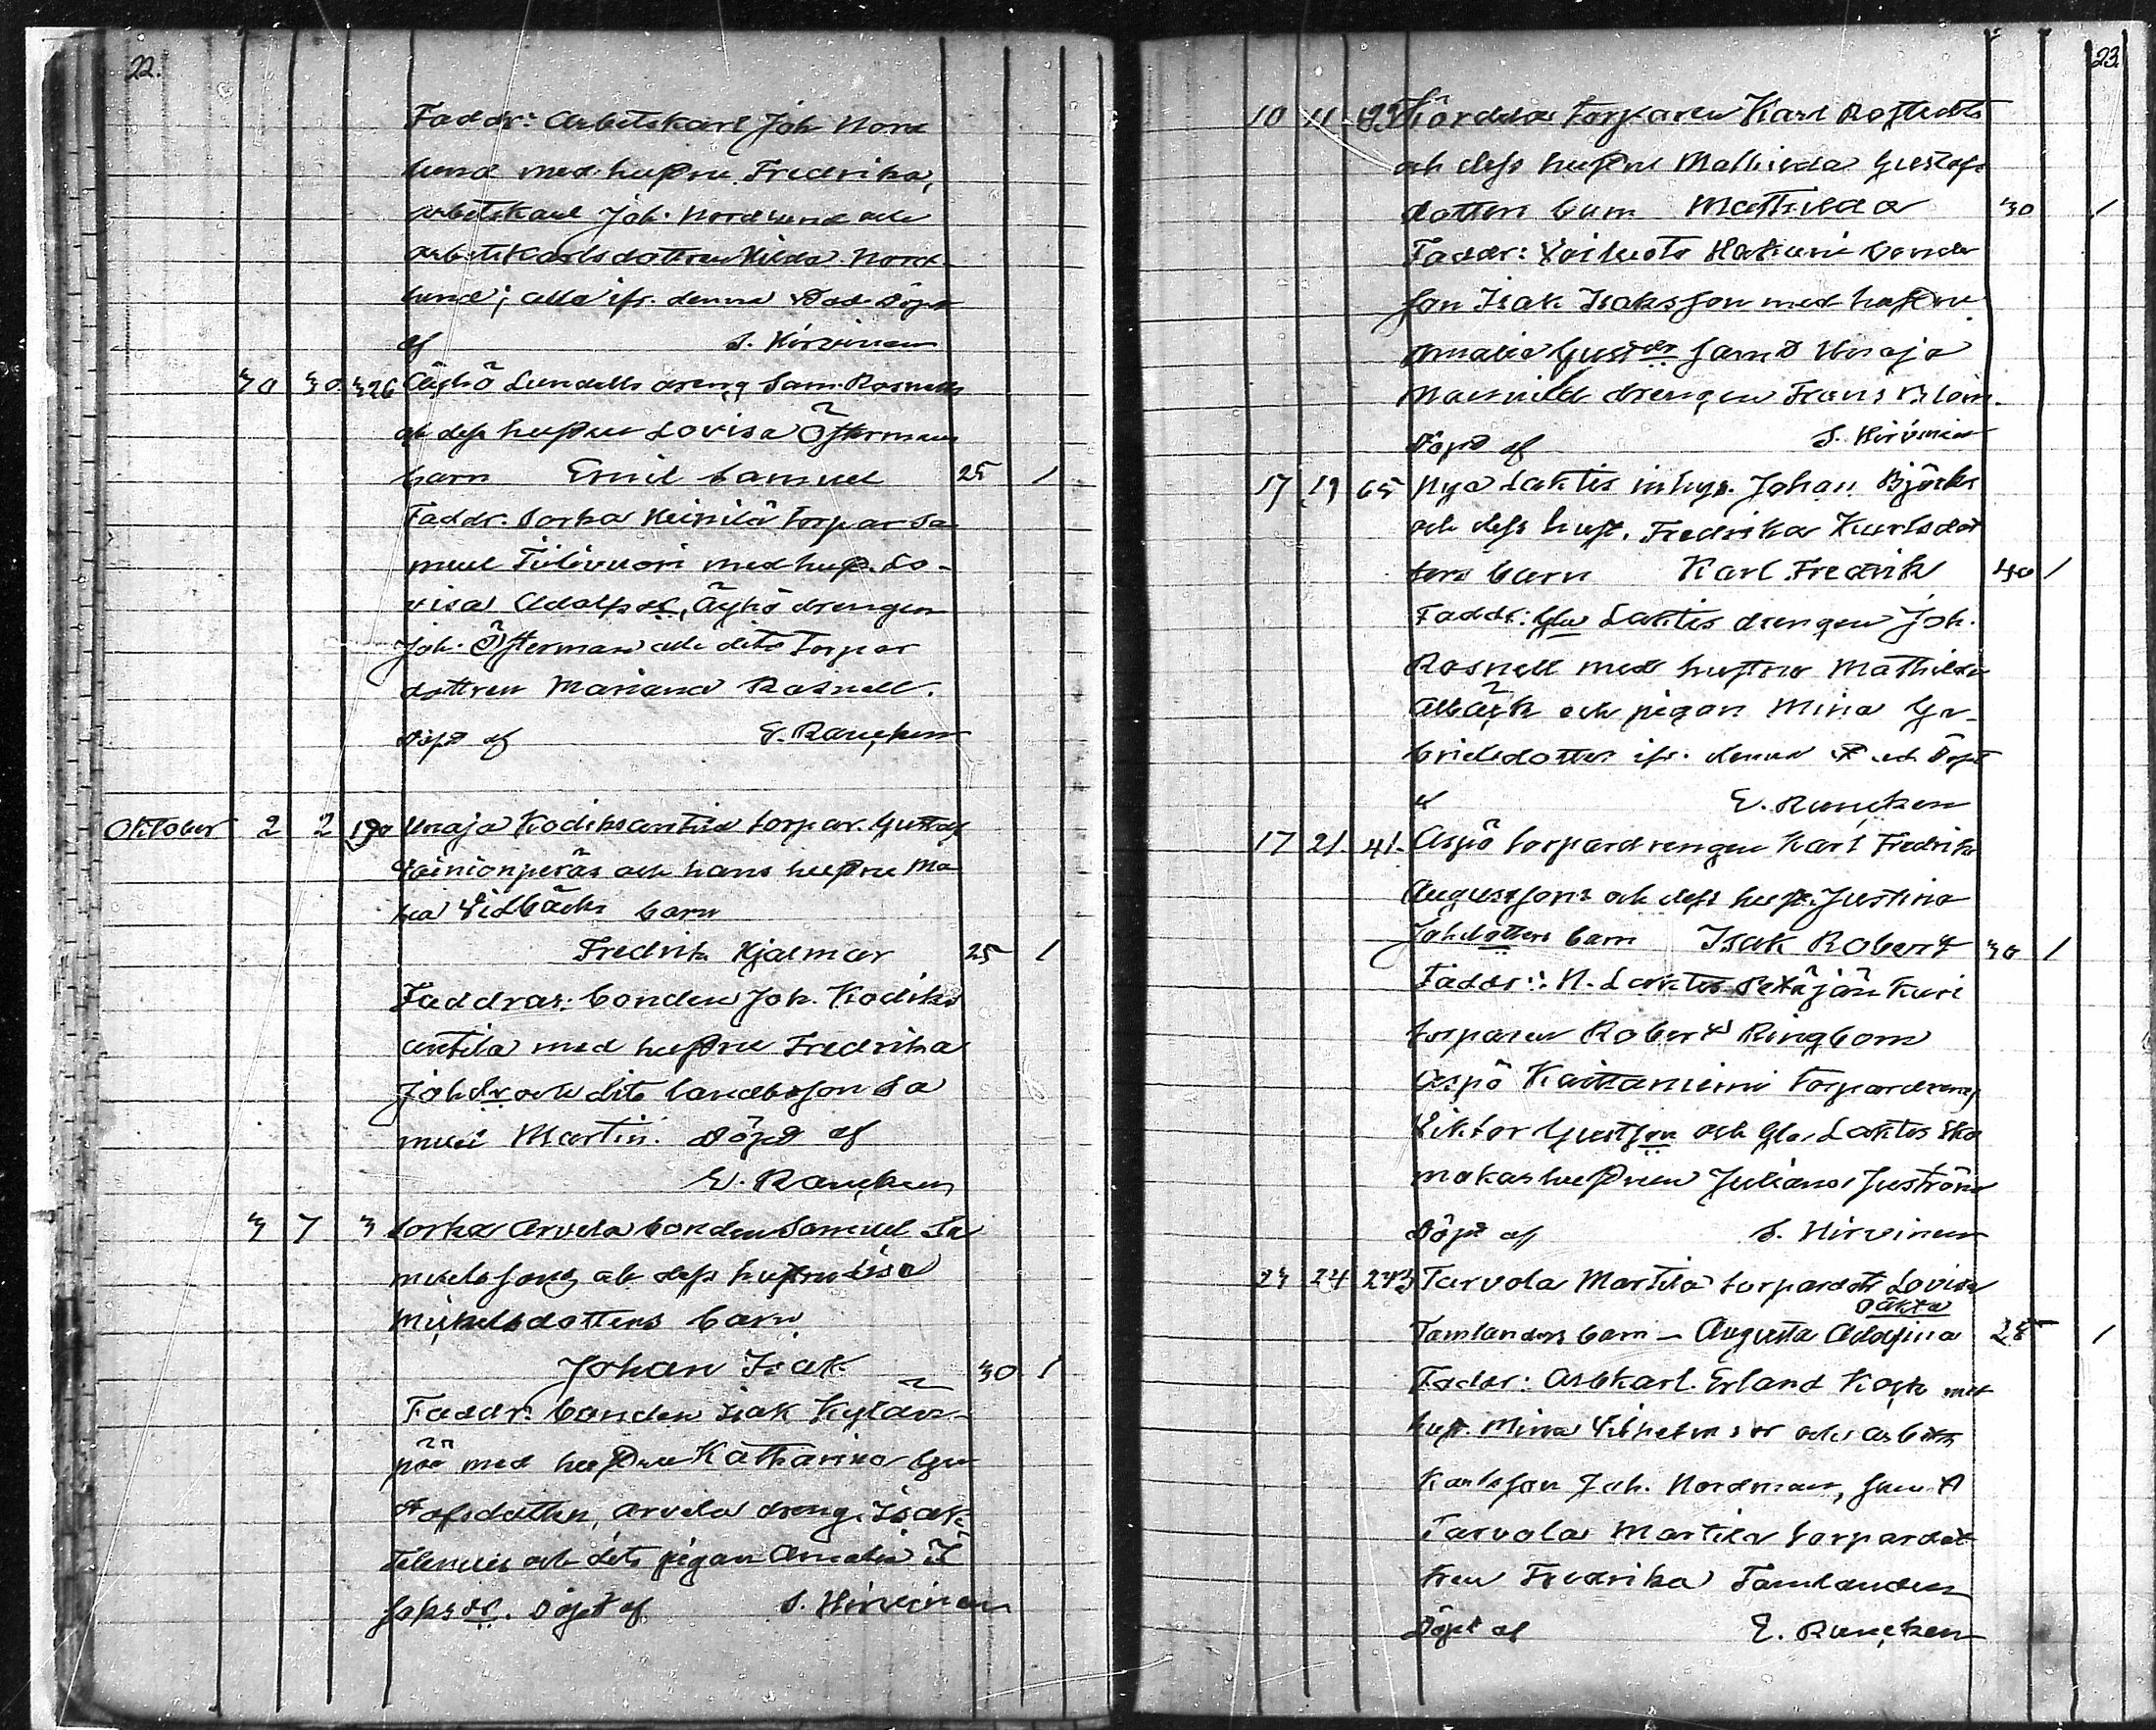 22.
Faddr: Arbetskarl Joh Nord
lund med hustru Fredrika,
arbetskarl Joh. Nordlund och
arbetskarlsdottren Hilda Nord-
lund; alla ifr. denna Stad Döpt
af S. Hirvinen
30 30. 326 Äyhö Lundells dreng Sam. Rosnells
och dess hustru Lovisa Östermans
barn Emil Samuel 25 1
Faddr. Sorka Heinilä torpar Sa
muel Tiilivuori med hust. Lo-
visa Adolfsdr, Äyhö drengen
Joh. Österman och dito torpar
dottren Mariana Rosnell.
Döpt af E. Rancken
Oktober 2 2 190 Unaja Kodiksantila torpar. Gustaf
Vainionperäs och hans hustru Ma
ria Vidbäcks barn
Fredrik Hjalmar 25 1
Faddrar: bonden Joh. Kodiks
antila med hustru Fredrika
Johdr och dito landbosson Sa
muel Martin. Döpt af
E. Rancken
3 7 3 Sorka Arvela bonden Samuel Sa
muelssons och dess hustru Lisa
Mickelsdotters barn
Johan Isak 30 1
Faddr: bonden Isak Kylän-
pää med hustru Katharina Gu
stafsdotter, Arvela dreng. Isak
och dito pigan Amalia I
saksdr. Döpt af S. Hirvinen
23.
10 11 193 torparen Karl Rostedts
och dess hustru Mathilda Gustafs
dotters barn Mathilda 30 1
Faddr: Voiluoto Hakuni bonde
son Isak Isaksson med hustru
Amalia Gustdr samt Unaja
drengen Frans Blom.
Döpt af S. Hirvinen
17 19 65 Nya Laktis inhys. Johan Björks
och dess hust. Fredrika Karlsdot
ters barn Karl Fredrik 40 1
Faddr: Gla Laktis drengen Joh.
Rosnell med hustru Mathilda
Albäck och pigan Mina Ga-
brielsdotter ifr. denna Stad Döpt
af E. Rancken
17 21. 41. Aspö torpardrengen Karl Fredrik
Augustssons och dess hust. Justina
Johdotters barn Isak Robert 30 1
Faddr: N. Laktis Petäjänkuri
torparen Robert Ringbom
Aspö Kaitaniemi torpardreng
Viktor Gustsson och Gla Laktis sko
makarhustrun Juliana Juström
Döpt af S. Hirvinen
23 24 243 Tarvola Martila torpardott Lovisa
oäkta
Tamlanders barn - Augusta Adolfina 25 1
Faddr: Arbkarl. Erland Koch med
hust. Mina Vilhelmsdr och arbets
karlsson Joh. Nordman, samt
Tarvola Martila torpardot
tren Fredrika Tamlander
Döpt af E. Rancken